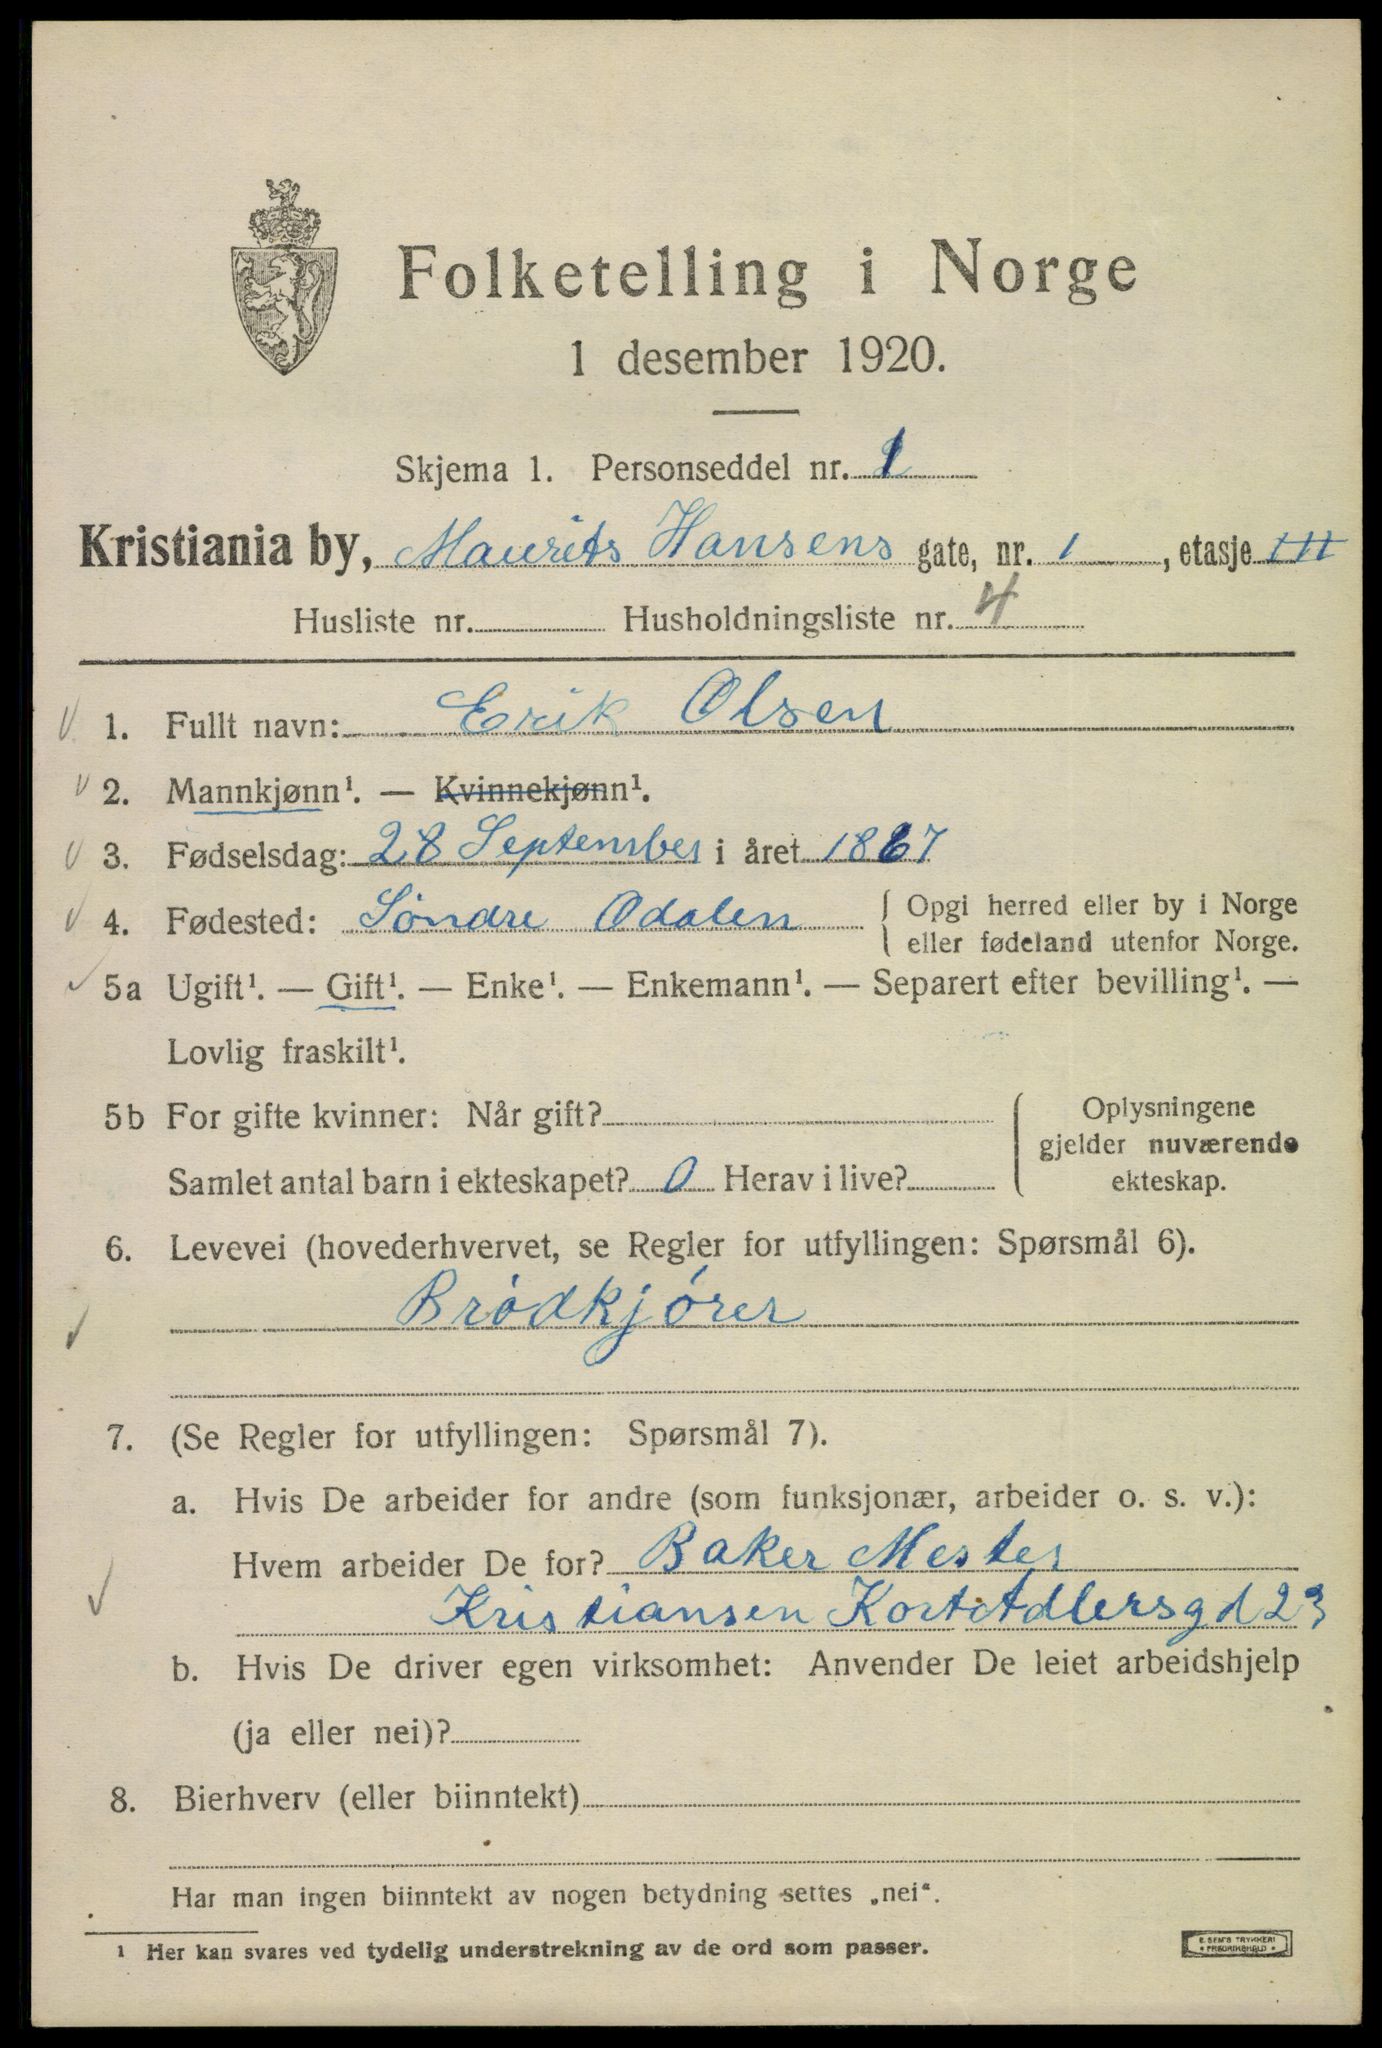 Folketelling i Norge
1 desember 1920.
Skjema 1. Personseddel nr. 1
Kristiania by, Maurits Hansens gate, nr. 1, etasje III
Husliste nr. Husholdningsliste nr. 4
1. Fullt navn: Erik Olsen
2. Mannkjønn¹. — Kvinnekjønn¹.
3. Fødselsdag: 28 September i året 1867
4. Fødested: Søndre Odalen { Opgi herred eller by i Norge
eller fødeland utenfor Norge.
5a Ugift¹. — Gift¹. — Enke¹. — Enkemann¹. — Separert efter bevilling¹. —
Lovlig fraskilt¹.
5b For gifte kvinner: Når gift? { Oplysningene
gjelder nuværende
Samlet antal barn i ekteskapet? 0 Herav i live? ekteskap.
6. Levevei (hovederhvervet, se Regler for utfyllingen: Spørsmål 6).
Brödkjórer
7. (Se Regler for utfyllingen: Spørsmål 7).
a. Hvis De arbeider for andre (som funksjonær, arbeider o. s. v.):
Hvem arbeider De for? Baker Mester
Kristiansen Kort Adlersgd 23
b. Hvis De driver egen virksomhet: Anvender De leiet arbeidshjelp
(ja eller nei)?
8. Bierhverv (eller biinntekt)
Har man ingen biinntekt av nogen betydning settes „nei“.
¹ Her kan svares ved tydelig understrekning av de ord som passer.
E. SEM'S TRYKKERI
* FREDRIKSHALD *